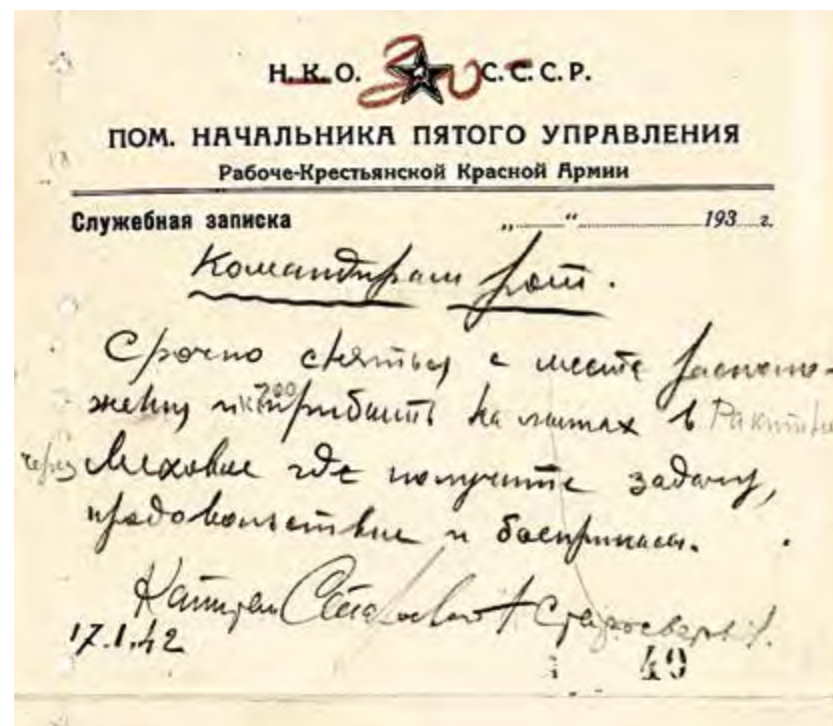 Н.К.О. С.С.С.Р.
ПОМ. НАЧАЛЬНИКА ПЯТОГО УПРАВЛЕНИЯ
Рабоче-Крестьянской Красной Армии
Служебная записка „ “ 193 г.
Командирам рот.
Срочно сняться с места располо-
жения и к 700 прибыть на лыжах в
через Меховое где получите задачу,
продовольствие и боеприпасы.
Капитан
17.1.42
49